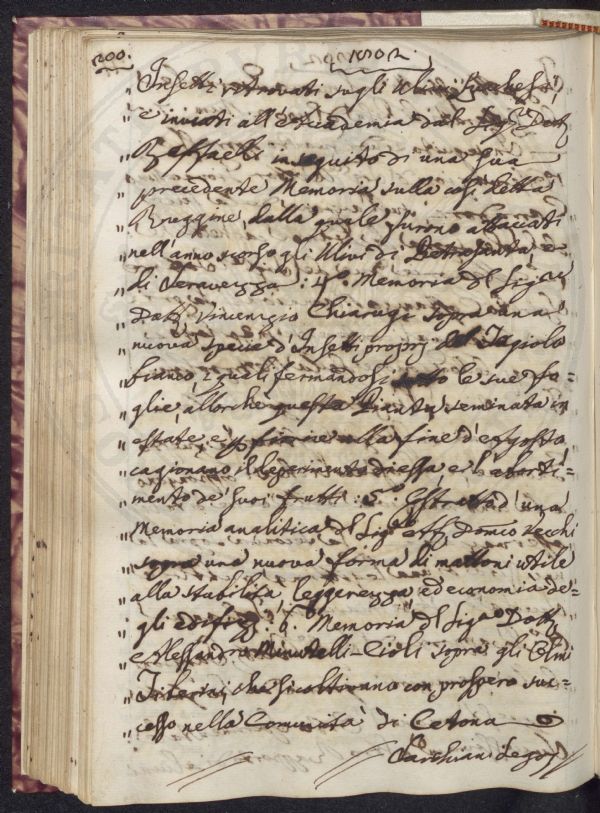 200. 1802.
„ Insetti ritrovati sugli Ulivi Lucchesi,
„ e inviati all'Accademia dal Sig.r Dott.
„ Raffaelli in seguito di una Sua
„ precedente Memoria sulla così detta
„ Ruggine, dalla quale furono attaccati
„ nell'anno scorso gli Ulivi di Pietrasanta, e
„ di Seravezza: 4.º Memoria del Sig.re
„ Dott. Vincenzio Chiarugi sopra una
„ nuova specie d'Insetti proprj del Fagiolo
„ bianco, i quali fermandosi sotto le sue fo=
„ glie, allorchè questa Pianta seminata in
„ estate, è alla fine d'Agosto
„ cagionano il deperimento d'essa, e l'aborti=
„ mento de' suoi frutti: 5.º Estratto d'una
„ Memoria analitica del Sig.re Domco Vecchi
„ sopra una nuova forma di mattoni utile
„ alla stabilità leggerezza ed economia de=
„ gli edifizj: 6.º Memoria del Sig.re Dott.
„ Alessandro Minutelli-Cioli sopra gli Olmi
„ che si coltivano con prospero suc=
„ cesso nella Comunità di Cetona
Sarchiani Seg.